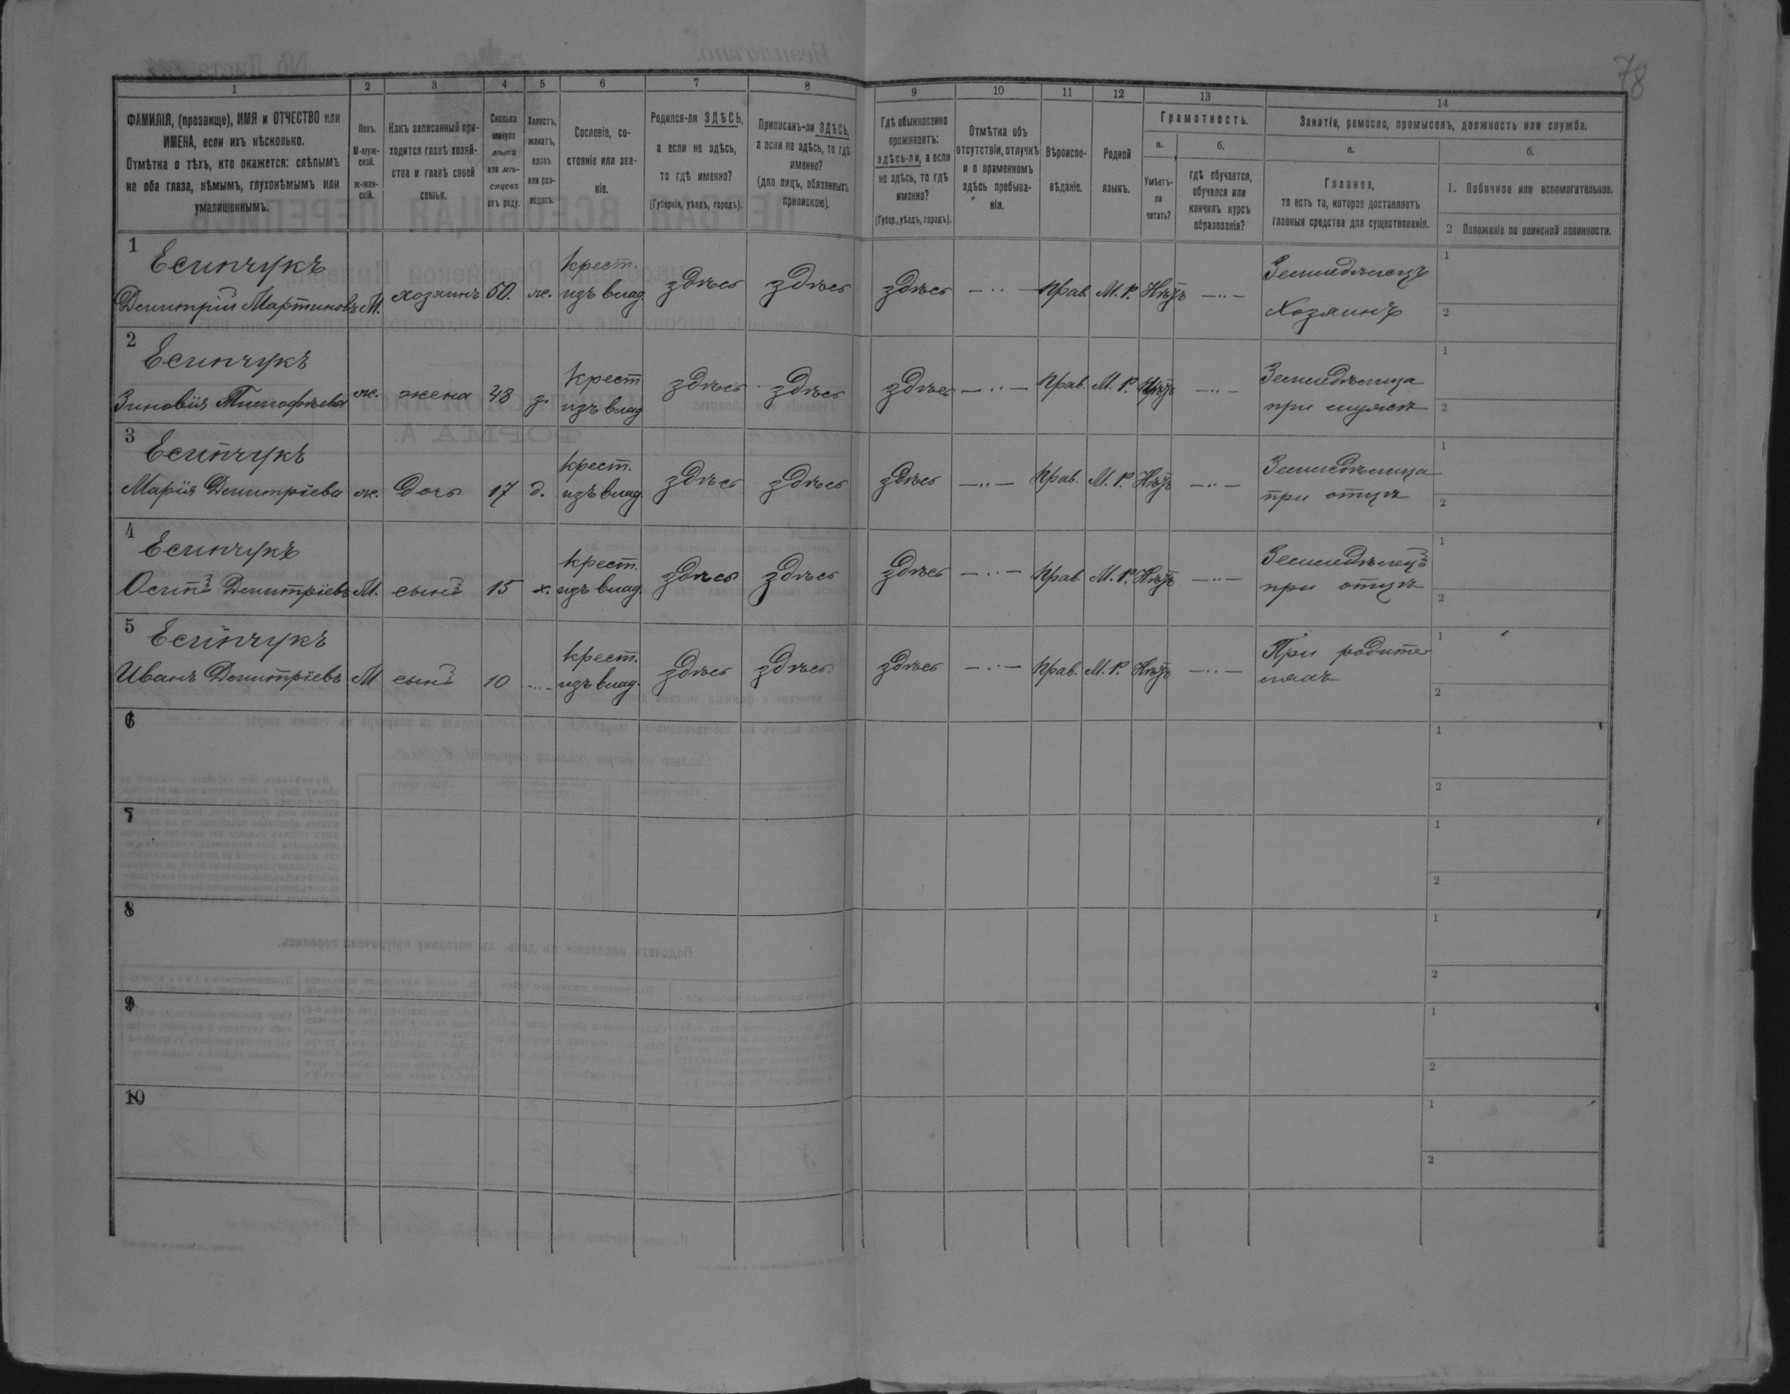 78
1 2 3 4 5 6 7 8 9 10 11 12 13 14
ФАМИЛІЯ, (прозвище), ИМЯ и ОТЧЕСТВО или
ИМЕНА, если ихъ нѣсколько.
Отмѣтка о тѣхъ, кто окажется: слѣпымъ
на оба глаза, нѣмымъ, глухонѣмымъ или
умалишеннымъ.
Полъ.
М-муж-
ской.
ж-жен-
скій.
Какъ записанный при-
ходится главѣ хозяй-
ства и главѣ своей
семьи.
Сколько
минуло
лѣтъ
или мѣ-
сяцевъ
отъ роду.
Холостъ,
женатъ,
вдовъ
или раз-
веденъ.
Сословіе, со-
стояніе или зва-
ніе.
Родился-ли ЗДѢСЬ,
а если не здѣсь,
то гдѣ именно?
(Губернія, уѣздъ, городъ).
Приписанъ-ли ЗДѢСЬ,
а если не здѣсь, то гдѣ
именно?
(для лицъ, обязанныхъ
припискою).
Гдѣ обыкновенно
проживаетъ:
здѣсь-ли, а если
не здѣсь, то гдѣ
именно?
(Губер., уѣздъ, городъ).
Отмѣтка объ
отсутствіи, отлучкѣ
и о временномъ
здѣсь пребыва-
ніи.
Вѣроиспо-
вѣданіе.
Родной
языкъ.
Грамотность.
а.
Умѣетъ-
ли
читать?
б.
гдѣ обучается,
обучался или
кончилъ курсъ
образованія?
Занятіе, ремесло, промыселъ, должность или служба.
а.
Главное,
то есть то, которое доставляетъ
главныя средства для существованія.
б.
1. Побочное или вспомогательное.
2 Положеніе по воинской повинности.
1 Есипчукъ
Димитрій Мартиновъ М. хозяинъ 50. ж. крест. изъ влад. здѣсь здѣсь здѣсь — · · — Прав. М. Р. Нѣтъ — · · — Земледѣлецъ
Хозяинъ
1
2
2 Есипчукъ
Зиновія Тимофѣева ж. жена 48 з. Крест изъ влад здѣсь здѣсь здѣсь — · · — Прав. М. Р. Нѣтъ — · · — Земледѣлица
при мужѣ
1
2
3 Есипчукъ
Марія Димитріева ж. дочь 17 д. крест. изъ влад здѣсь здѣсь здѣсь — · · — Прав. М. Р. Нѣтъ — · · — Земледѣлица
при отцѣ
1
2
4 Есипчукъ
Осипъ Димитріевъ М. сынъ 15 х. крест. изъ влад. здѣсь здѣсь здѣсь — · · — Прав. М. Р. Нѣтъ — · · — Земледѣлецъ
при отцѣ
1
2
5 Есипчукъ
Иванъ Димитріевъ М сынъ 10 — · · — крест. изъ влад. здѣсь здѣсь здѣсь — · · — Прав. М. Р. Нѣтъ — · · — При родите
ляхъ
1
2
6
1
2
7
1
2
8
1
2
9
1
2
10
1
2